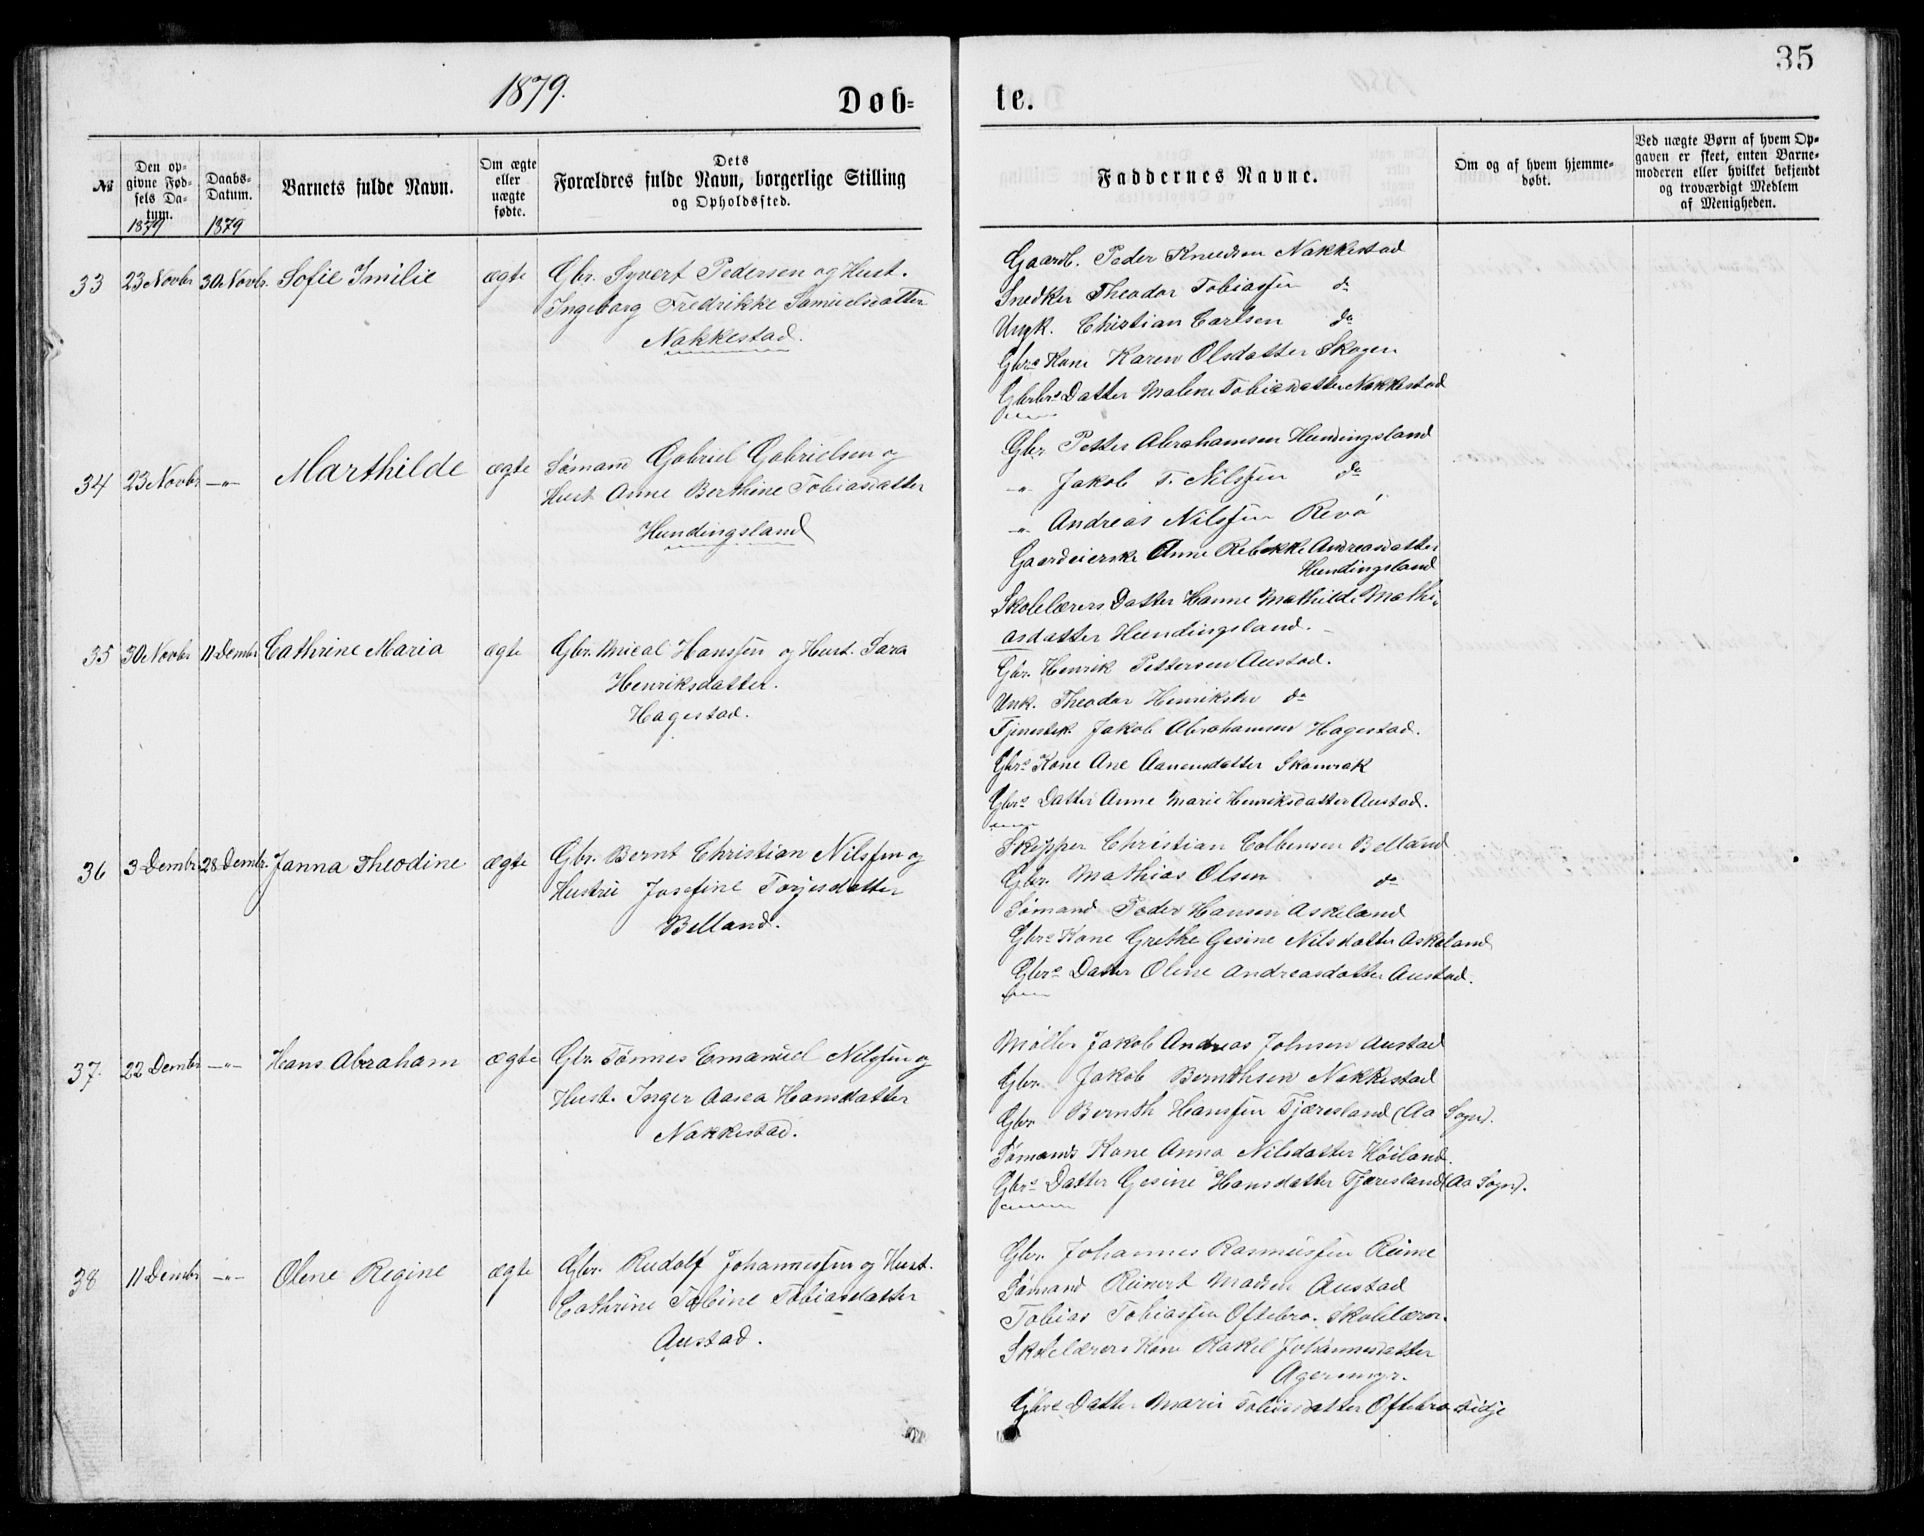 35
1879.
Døbte.
№
Den opgivne Fødsels Datum.
1879
Daabs-Datum.
1879
Barnets fulde Navn.
Om ægte eller uægte fødte.
Dets
Forældres fulde Navn, borgerlige Stilling
og Opholdssted.
Faddernes Navne.
Om og af hvem hjemmedøbt.
Ved uægte Børn af hvem Opgaven er skeet, enten Barnemoderen eller hvilket bekjendt og troværdigt Medlem af Menigheden.
33 23 Novbr 30 Novbr. Sofie Imilie ægte Gbr. Syvert Pedersen og Hust.
Ingeborg Fredrikke Samuelsdatter
Nakkestad.
Gaardb. Peder Knudsen Nakkestad
Snedker Theodor Tobiassen do
Ungk. Christian Carlsen do
Gbrs Kone Karen Olsdatter Skogen
Datter Malene Tobiasdatter Nakkestad
34 23 Novbr -"- Marthilde ægte Sømand Gabriel Gabrielsen og
Hust Anne Berthine Tobiasdatter
Hundingsland
Gbr Petter Abrahamsen Hundingsland
-"- Jakob T. Nilssen do
-"- Andreas Nilssen Revø
Gaardeierske Anne Rebekke Andreasdatter
Hundingsland
Skolelærers Datter Hanne Mathilde Mathi-
asdatter Hundingsland.
35 30 Novbr 11 Dembr Cathrine Maria ægte Gbr. Mical Hanssen og Hust. Sara
Henriksdatter.
Hagestad.
Gbr. Henrik Pettersen Austad.
Unk. Theodor Henriksen do
Tjenestek. Jakob Abrahamsen Hagestad.
Gbrs Kone Ane Aanensdatter Skomrak
Gbrs Datter Anne Marie Henriksdatter Austad.
36 3 Dembr 28 Dembr. Janna Theodine ægte Gbr. Bernt Christian Nilssen og
Hustru Josefine Torjesdatter
Belland.
Skipper Christian Colbensen Belland
Gbr. Mathias Olsen do
Sømand Peder Hansen Askeland
Gbrs Kone Grethe Gesine Nilsdatter Askeland
Gbrs Datter Oline Andreasdatter Austad.
37. 22 Dembr -"- Hans Abraham ægte Gbr. Tønnes Emanuel Nilssen og
Hust. Inger Aasea Hansdatter
Nakkestad.
Møller Jakob Andreas Johnsen Austad
Gbr. Jakob Bernthsen Nakkestad
Gbr. Bernth Hanssen Tjæresland (Aa Sogn).
Sømands Kone Anna Nilsdatter Høiland.
Gbrs Datter Gesine Hansdatter Tjæresland (Aa Sogn).
38 11 Dembr -"- Olene Regine ægte Gbr. Rudolf Johannessen og Hust.
Cathrine Tobine Tobiasdatter
Austad.
Gbr. Johannes Rasmussen Reime
Sømand Reinert Madsen Austad
Tobias Tobiassen Oftebro. Skolelærer.
Skolelærers Kone Rakel Johannesdatter
Agermyr.
Gbrs Datter Marie Tobiasdatter Oftebro